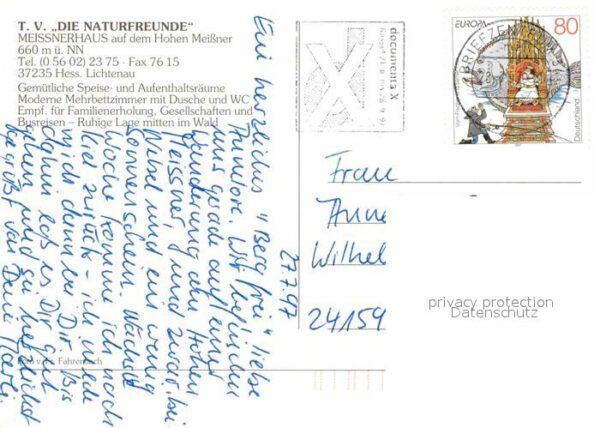 T. V. „DIE NATURFREUNDE"
MEISSNERHAUS auf dem Hohen Meißner
660 m ü. NN
Tel. (0 56 02) 23 75 · Fax 76 15
37235 Hess. Lichtenau
Gemütliche Speise- und Aufenthaltsräume
Moderne Mehrbettzimmer mit Dusche und WC
Empf. für Familienerholung, Gesellschaften und
Busreisen – Ruhige Lage mitten im Wald
27.7.97
Ein herzliches "Berg frei" liebe
Annelore. Wir befinden
uns gerade auf einer
Wanderung am Hohen
Meissner, und zwar bei
Nebel und ein wenig
Sonnenschein. Nächste
Woche komme ich nach
Kiel zurück – ich melde
mich dann bei Dir. Bis
dahin laß es Dir gut
gehen und sei herzlichst
gegrüßt von Deine
documenta X
Kassel 21.6. bis 28.9.97
X
EUROPA
80
Deutschland
BRIEFZENTRUM
Frau
Anne
Wilhel
24159
privacy protection
Datenschutz
Fahrenbach